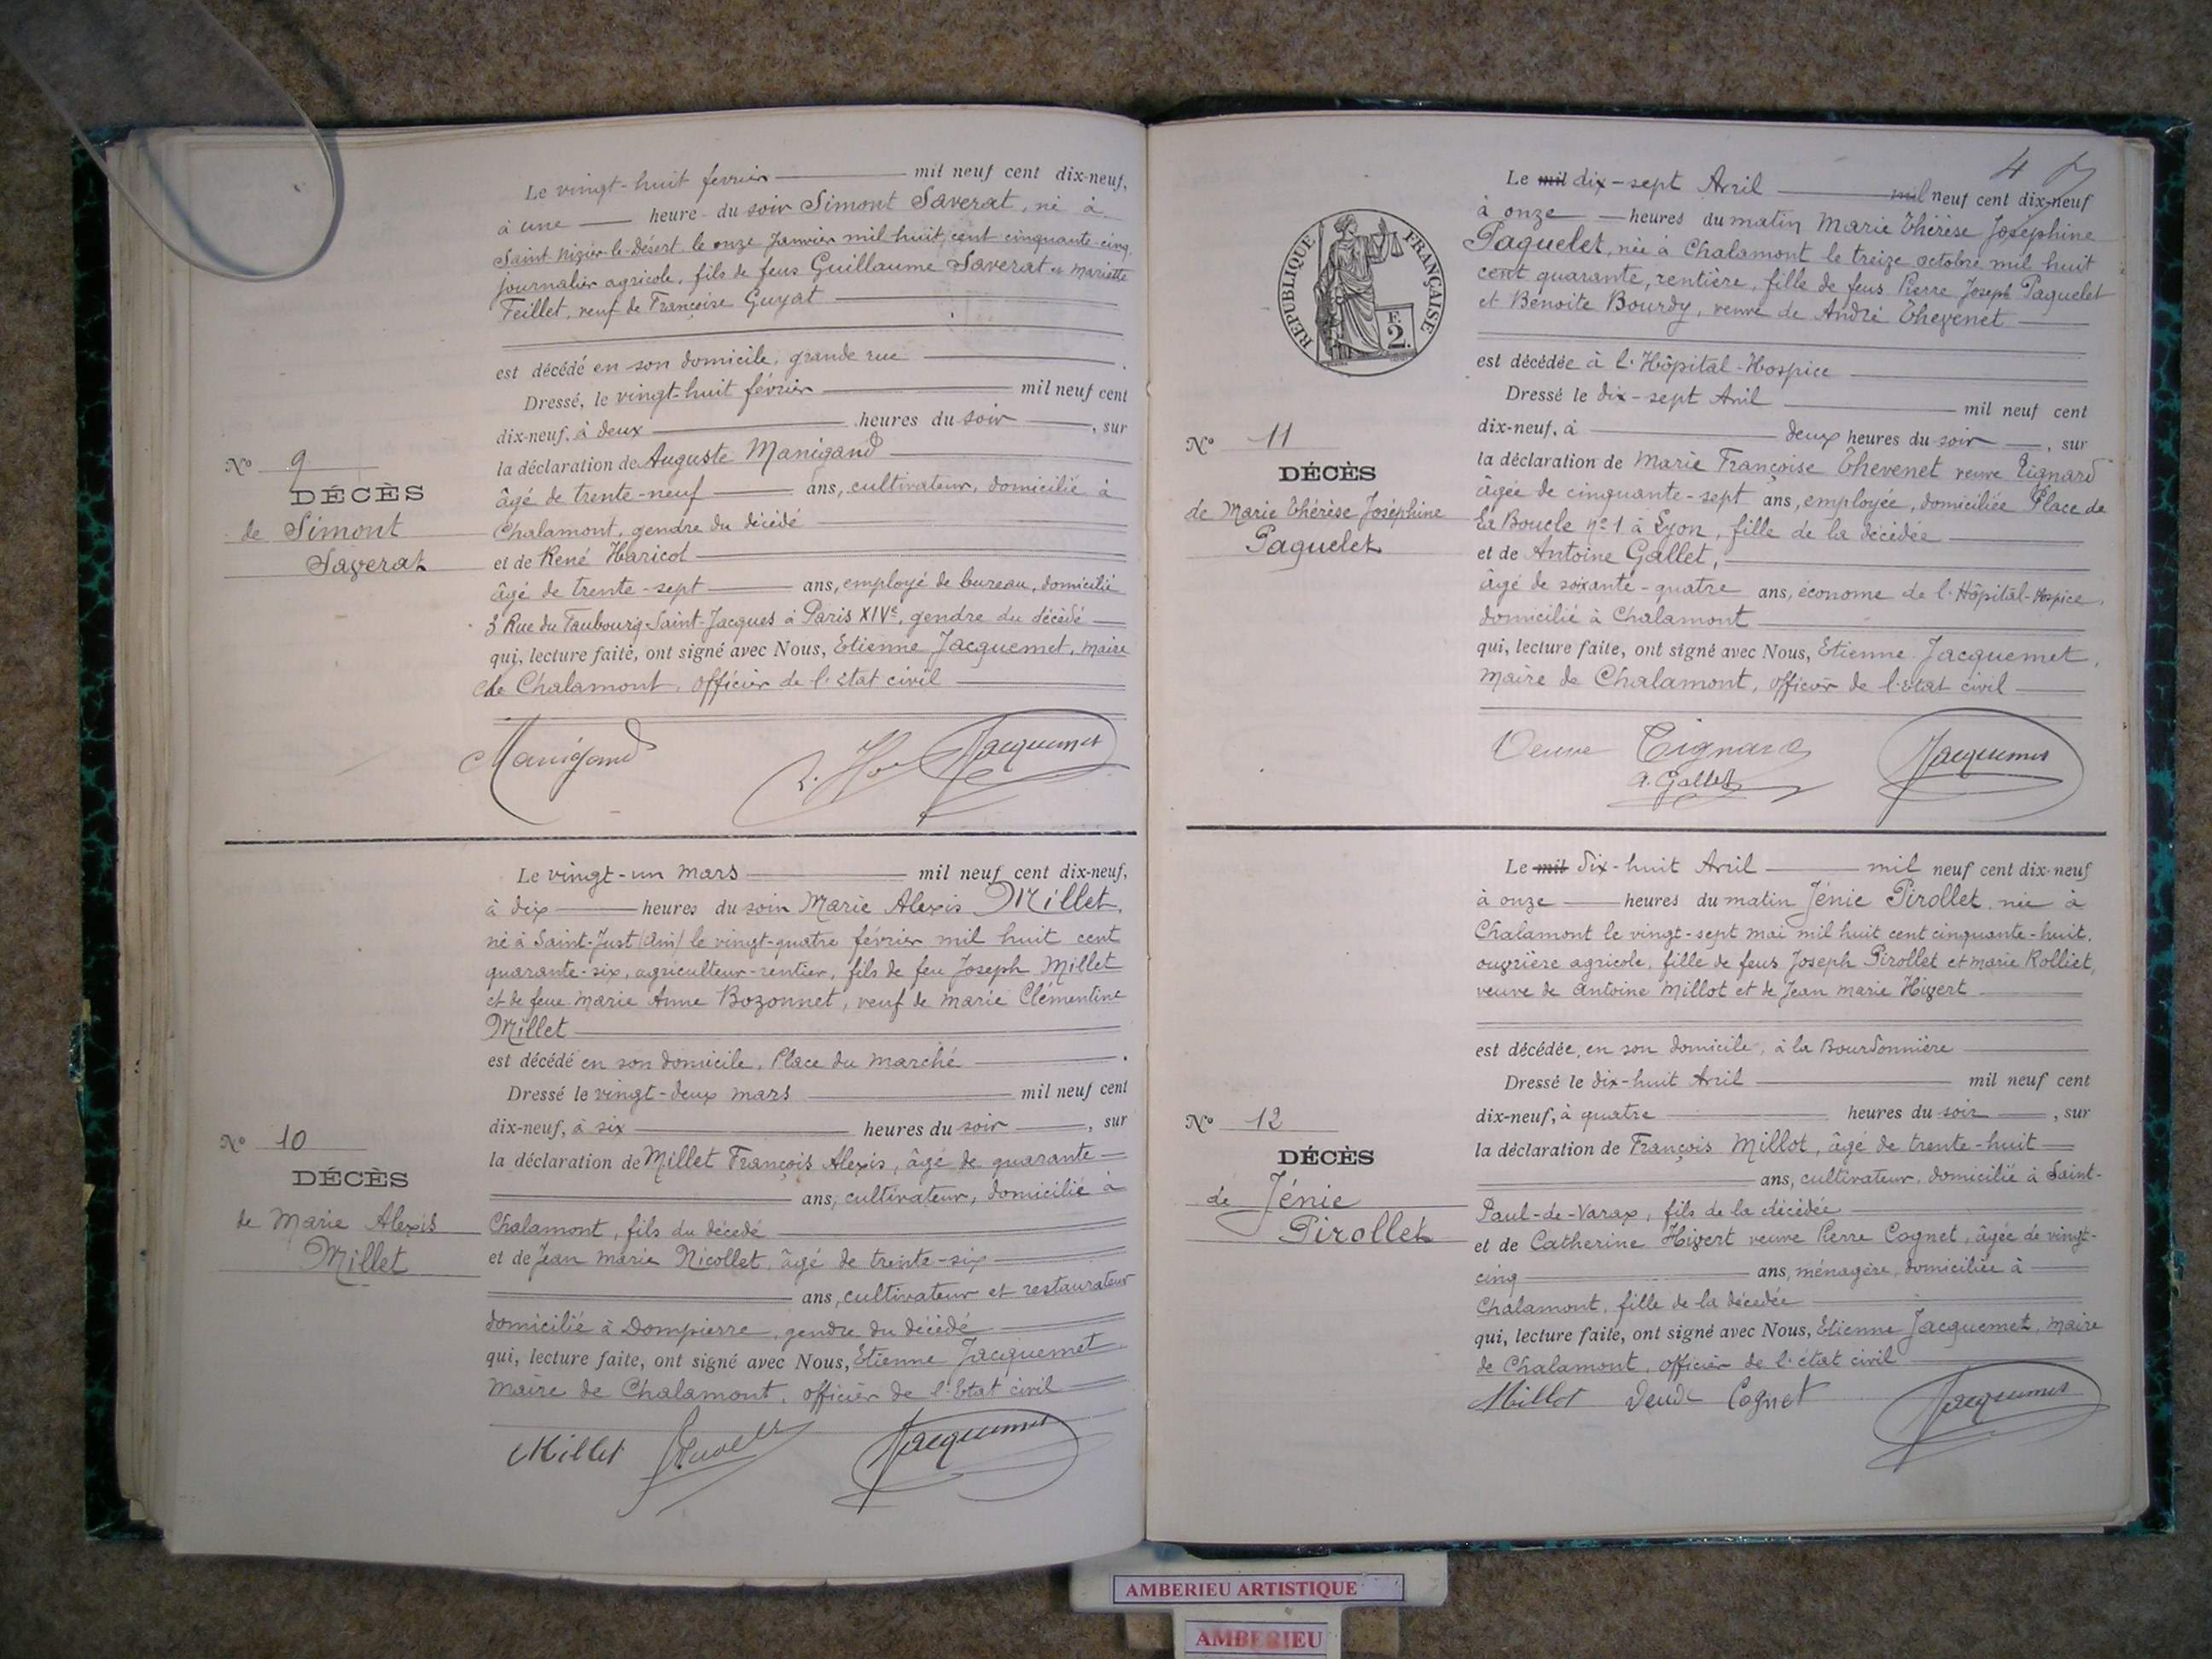 Le vingt-huit fevrier mil neuf cent dix-neuf,
à une heure du soir Simont Saverat, né à
Saint Nizier-le-Désert le onze Janvier mil huit cent cinquante-cinq,
journalier agricole, fils de feus Guillaume Saverat et Mariette
Feillet, veuf de Françoise Guyat
est décédé en son domicile, grande rue
Dressé, le vingt-huit février mil neuf cent
dix-neuf, à deux heures du soir, sur
la déclaration de Auguste Manigand
âgé de trente-neuf ans, cultivateur, domicilié à
Chalamont, gendre du décédé
et de René Haricot
âgé de trente-sept ans, employé de bureau, domicilié
3 Rue du Faubourg-Saint-Jacques à Paris XIVe, gendre du décédé
qui, lecture faite, ont signé avec Nous, Etienne Jacquemet, maire
de Chalamont, officier de l'état civil
Manigand Jacquemet
No 9
DÉCÈS
de Simont
Saverat
Le vingt-un mars mil neuf cent dix-neuf,
à dix heures du soir Marie Alexis Millet,
né à Saint-Just (Ain) le vingt-quatre février mil huit cent
quarante-six, agriculteur-rentier, fils de feu Joseph Millet
et de feue Marie Anne Bozonnet, veuf de Marie Clémentine
Millet
est décédé en son domicile, Place du Marché
Dressé le vingt-deux mars mil neuf cent
dix-neuf, à six heures du soir, sur
la déclaration de Millet François Alexis, âgé de quarante
ans, cultivateur, domicilié à
Chalamont, fils du décédé
et de Jean Marie Nicollet, âgé de trente-six
ans, cultivateur et restaurateur
domicilié à Dompierre, gendre du décédé
qui, lecture faite, ont signé avec Nous, Etienne Jacquemet,
Maire de Chalamont, officier de l'Etat civil
Millet Jacquemet
No 10
DÉCÈS
de Marie Alexis
Millet
4
REPUBLIQUE FRANÇAISE
F.
2.
Le mil dix-sept Avril mil neuf cent dix-neuf
à onze heures du matin Marie Thérèse Joséphine
Paquelet, née à Chalamont le treize octobre mil huit
cent quarante, rentière, fille de feus Pierre Joseph Paquelet
et Benoite Bourdy, veuve de André Thevenet
est décédée à l'Hôpital-Hospice
Dressé le dix-sept Avril mil neuf cent
dix-neuf, à deux heures du soir, sur
la déclaration de Marie Françoise Thevenet veuve Tignard
âgée de cinquante-sept ans, employée, domiciliée Place de
la Boucle no 1 à Lyon, fille de la décédée
et de Antoine Gallet,
âgé de soixante-quatre ans, économe de l'Hôpital-Hospice,
domicilié à Chalamont
qui, lecture faite, ont signé avec Nous, Etienne Jacquemet,
Maire de Chalamont, officier de l'état civil
Veuve Tignard Jacquemet
A. Gallet
No 11
DÉCÈS
de Marie Thérèse Joséphine
Paquelet
Le mil dix-huit Avril mil neuf cent dix-neuf
à onze heures du matin Jénie Pirollet, née à
Chalamont le vingt-sept mai mil huit cent cinquante-huit,
ouvrière agricole, fille de feus Joseph Pirollet et Marie Rolliet,
veuve de Antoine Millot et de Jean Marie Hivert
est décédée, en son domicile, à la Bourdonnière
Dressé le dix-huit Avril mil neuf cent
dix-neuf, à quatre heures du soir, sur
la déclaration de François Millot, âgé de trente-huit
ans, cultivateur, domicilié à Saint-
Paul-de-Varax, fils de la décédée
et de Catherine Hivert veuve Pierre Cognet, âgée de vingt-
cinq ans, ménagère, domiciliée à
Chalamont, fille de la décédée
qui, lecture faite, ont signé avec Nous, Etienne Jacquemet, Maire
de Chalamont, officier de l'état civil
Millot Veuve Cognet Jacquemet
No 12
DÉCÈS
de Jénie
Pirollet
AMBERIEU ARTISTIQUE
AMBERIEU